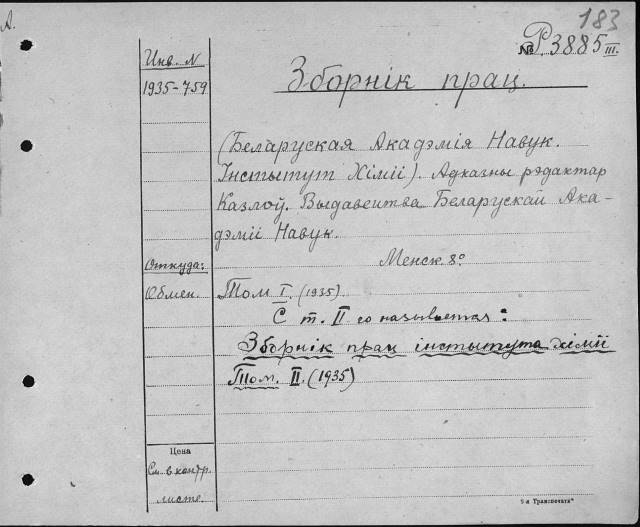 А.
183
№ Р.3885 III.
Инв. N
1935-759
Зборнік прац.
(Беларуская Акадэмія Навук.
Інстытут Хіміі). Адказны рэдактар
Казлоў. Выдавецтва Беларускай Ака-
дэміі Навук.
Менск 8º
Откуда:
Обмен.
Том I. (1935).
С т. II го называется:
Зборнік прац інстытута хіміі
Том. II. (1935)
Цена
См. в контр.
листе.
9-я Транспечать"